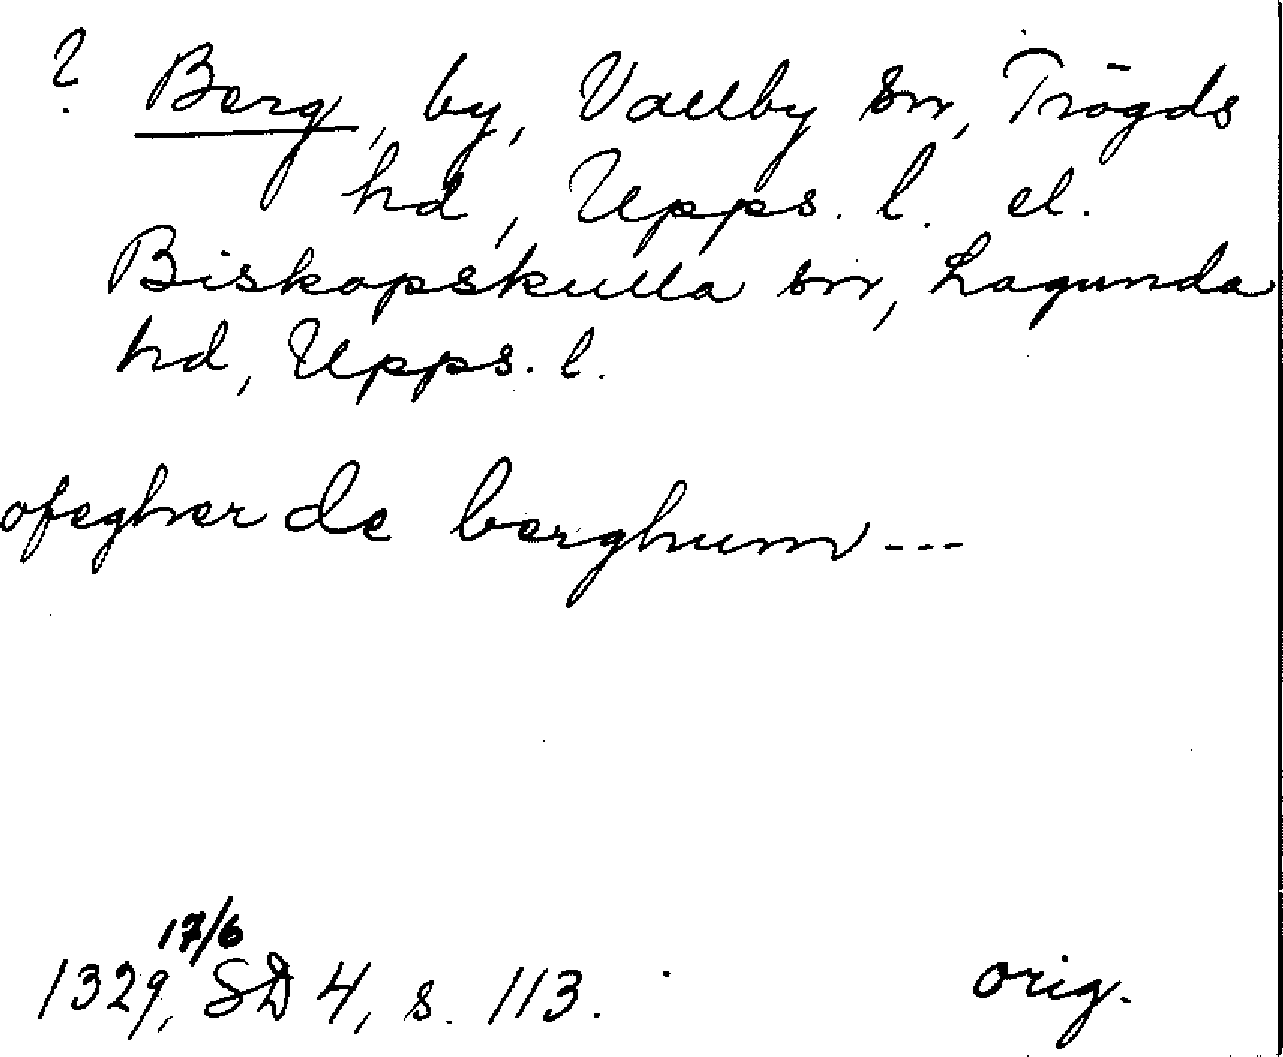 ? Berg, by, Vallby sn, Trögds
hd, Upps. l. el.
Biskopskulla sn, Lagunda
hd, Upps. l.
ofegher de berghum---
17/6
1329, SD 4, s. 113. orig.